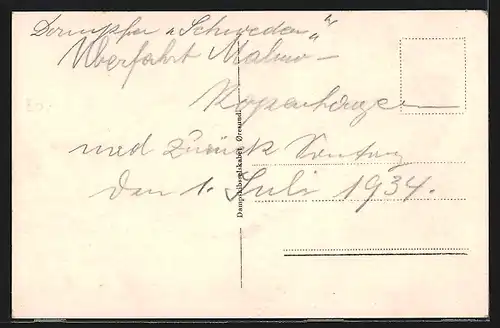 Dampfer „Schweden"
Überfahrt Malmö –
Kopenhagen
und zurück Sontag
den 1. Juli 1934.
Dampskibsselskabet Øresund